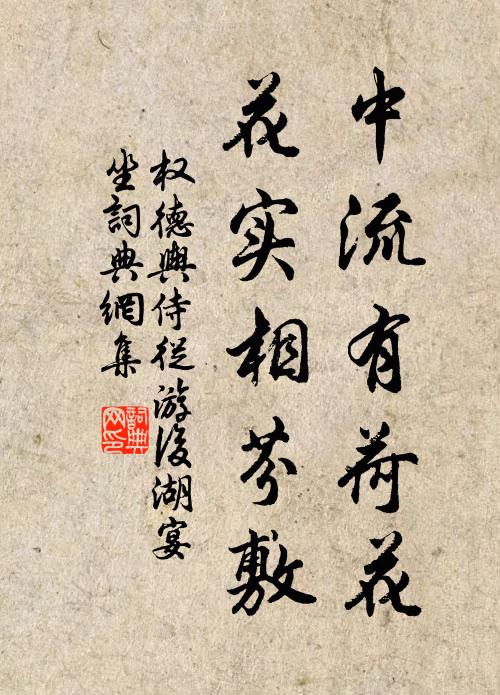 中流有荷花
花实相芬敷
权德舆侍从游后湖宴
坐詞典網集
詞典网印